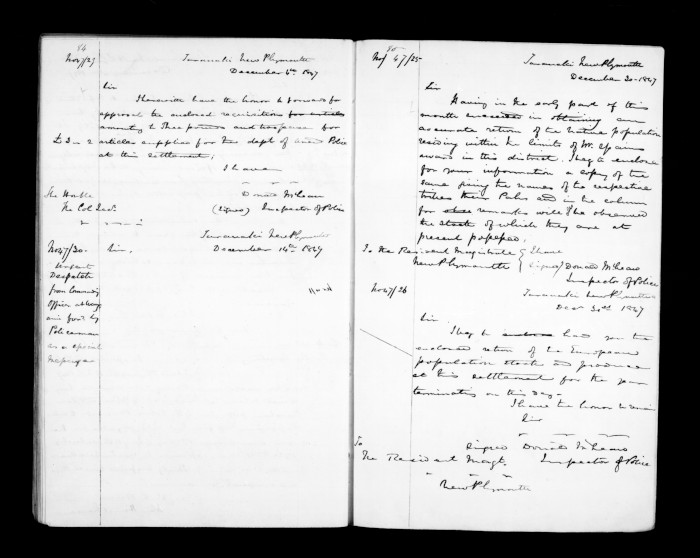 84
No 47/29
Taranaki New Plymouth
December 4th 1847
Sir
I herewith have the honor to forward for
approval the enclosed requisition for articles
amounting to Three pounds and twopence for
£3 " 2 articles supplied for the dept of and Police
at this settlement.
I have
Donald McLean
(Signed) Inspector of Police
The Honble
The Col Secy
Taranaki New Plymouth
December 14th 1847
No 47/30.
Sir.
Urgent
Despatch
from Commanding
Officer
Policeman
as a special
messenger
85
No 47/25
Taranaki New Plymouth
December 30. 1847
Sir
Having in the early part of this
month succeeded in obtaining an
accurate return of the Native population
residing within the limits of Mr Spains
award in this district. I beg to enclose
for your information a copy of the
same giving the names of the respective
tribes their Pahs and in the column
for stock remarks will be observed
the stock of which they are at
present possessed.
To the Resident Magistrate
I have
New Plymouth
(signed) Donald McLean
Inspector of Police
No 47/26
Taranaki New Plymouth
Decr 30th 1847
Sir
I beg to enclose hand you the
enclosed return of the European
population stock and produce
at this settlement for the year
terminating on this day.
I have the honor to remain
Sir
signed Donald McLean
To
The Resident Magt. Inspector of Police
New Plymouth